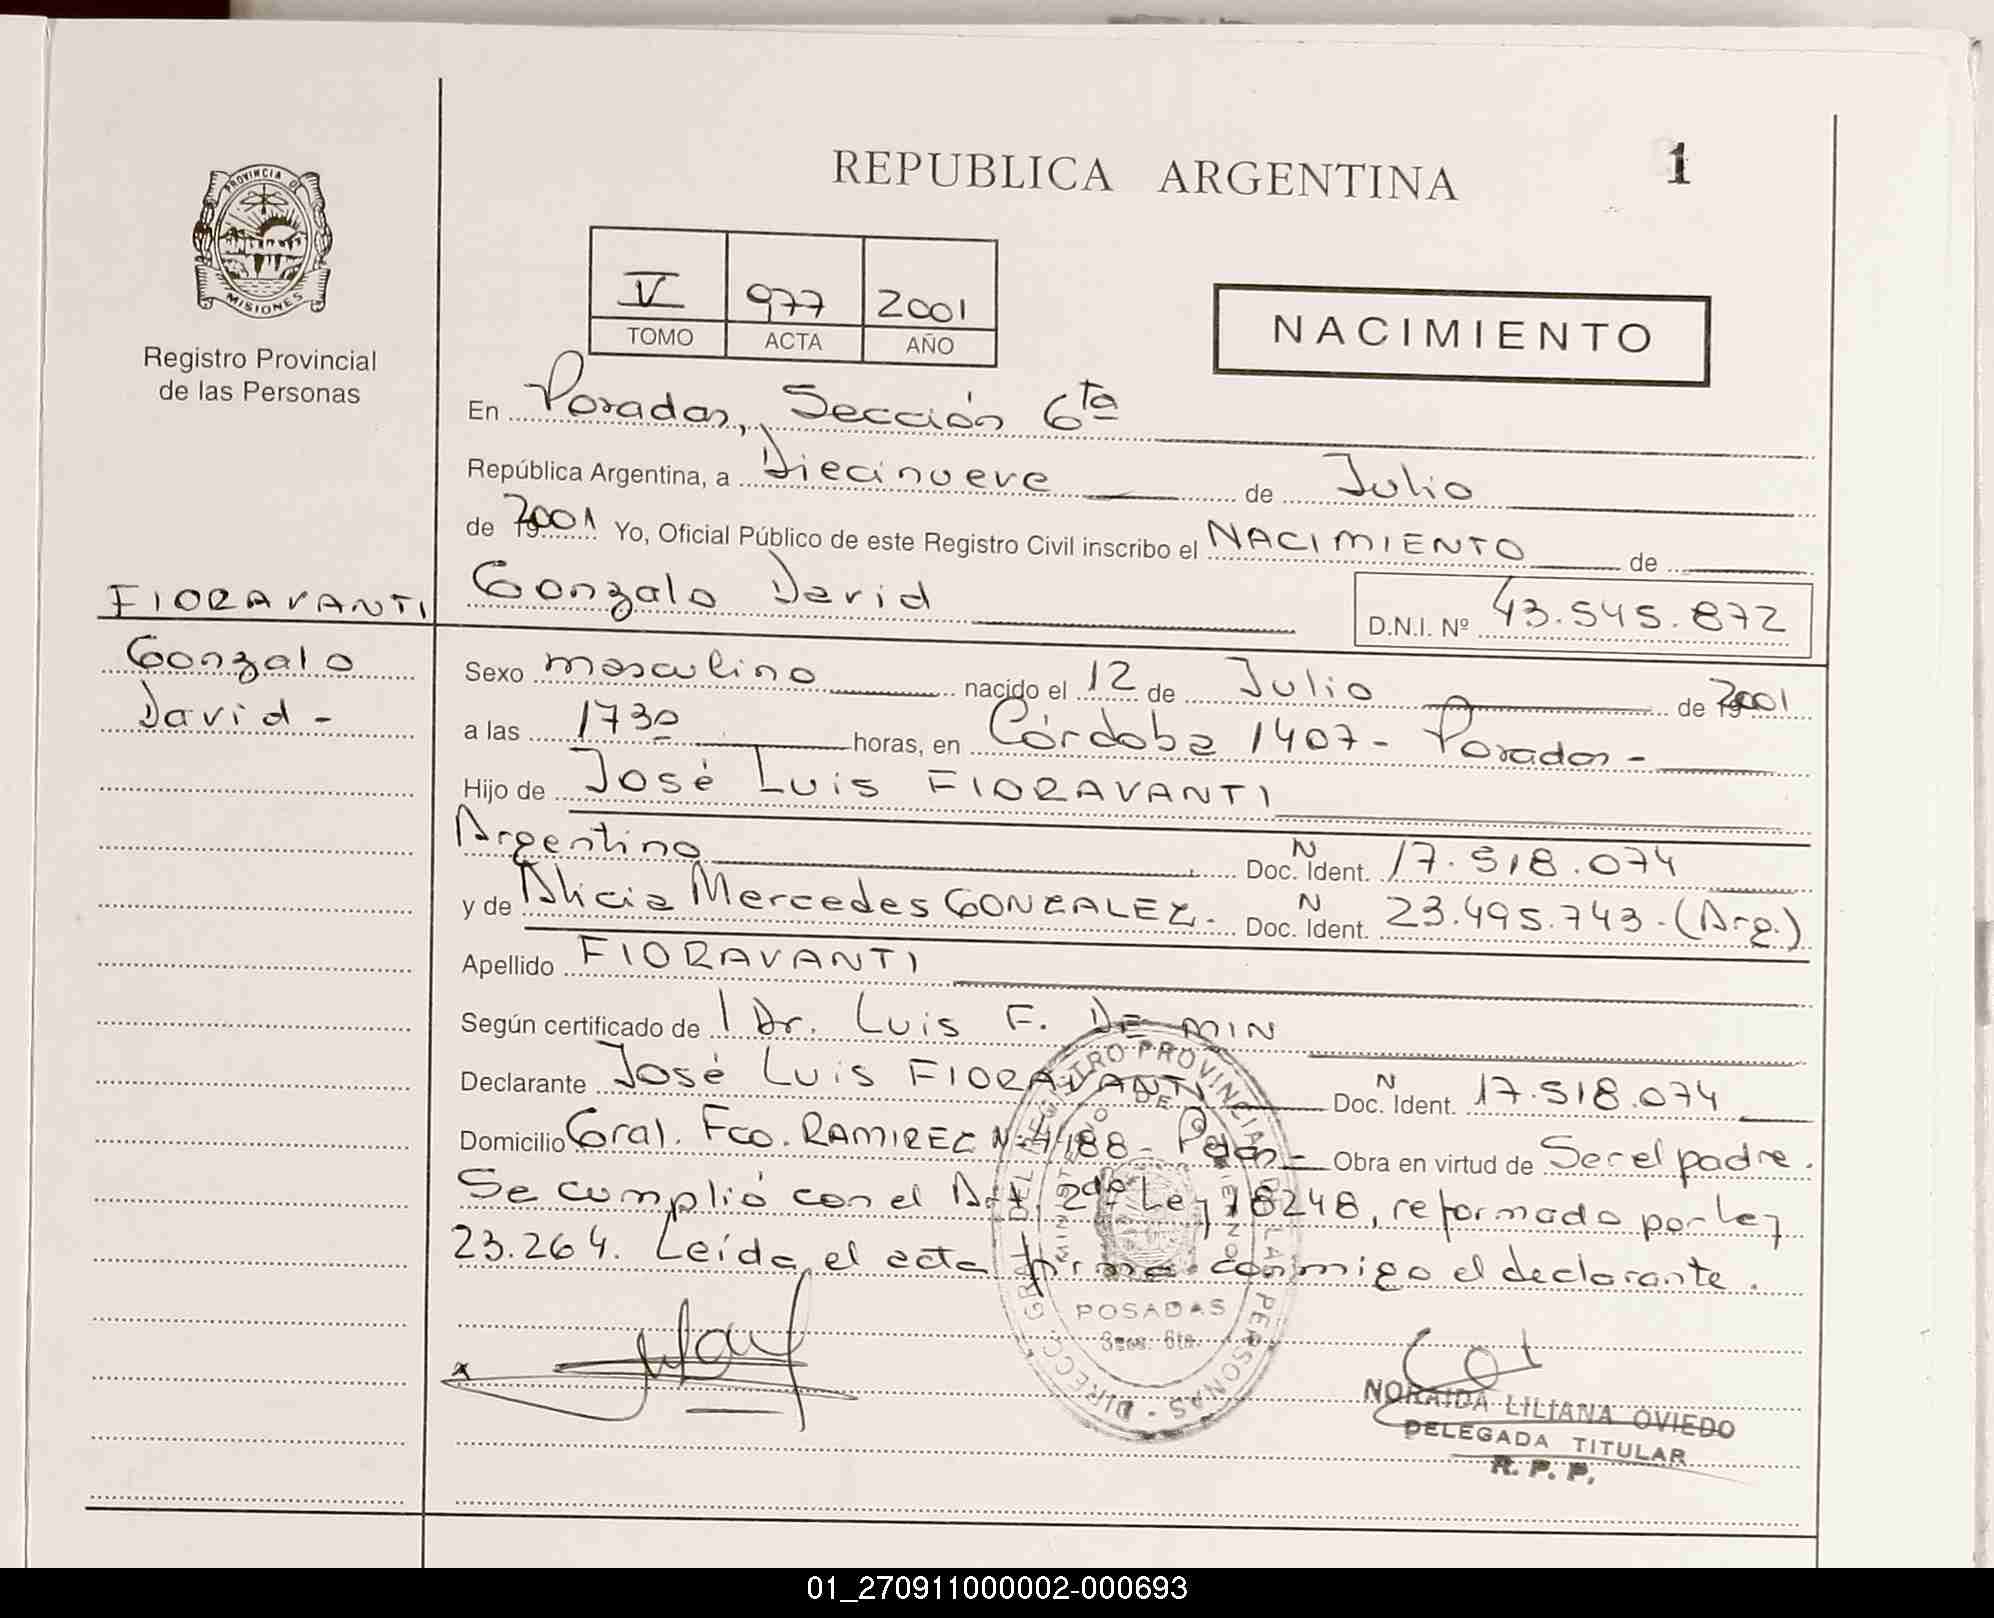 REPUBLICA ARGENTINA
1
PROVINCIA DE
MISIONES
Registro Provincial
de las Personas
V 977 2001
TOMO ACTA AÑO
NACIMIENTO
En Posadas, Sección 6ta
República Argentina, a Diecinueve de Julio
de 2001 Yo, Oficial Público de este Registro Civil inscribo el NACIMIENTO de
Gonzalo David
D.N.I. Nº 43.545.872
FIORAVANTI
Gonzalo
David -
Sexo masculino nacido el 12 de Julio de 2001
a las 1730 horas, en Córdoba 1407 - Posadas -
Hijo de José Luis FIORAVANTI
Argentino Doc. N Ident. 17.518.074
y de Alicia Mercedes GONZALEZ - Doc. N Ident. 23.495.743 - (Arg.)
Apellido FIORAVANTI
Según certificado de l Dr. Luis F. DE MIN
Declarante José Luis FIORAVANTI Doc. N Ident. 17.518.074
Domicilio Gral. Fco. RAMIREZ Nº 4188 - Pdas - Obra en virtud de Ser el padre.
Se cumplió con el Art. 2do Ley 18248, reformado por Ley
23.264. Leída el acta firma conmigo el declarante.
DIRECC. GRAL. DEL REGISTRO PROVINCIAL DE LAS PERSONAS
MINISTERIO DE GOBIERNO
POSADAS
Secc. 6ta.
NORAIDA LILIANA OVIEDO
DELEGADA TITULAR
R. P. P.
01_270911000002-000693